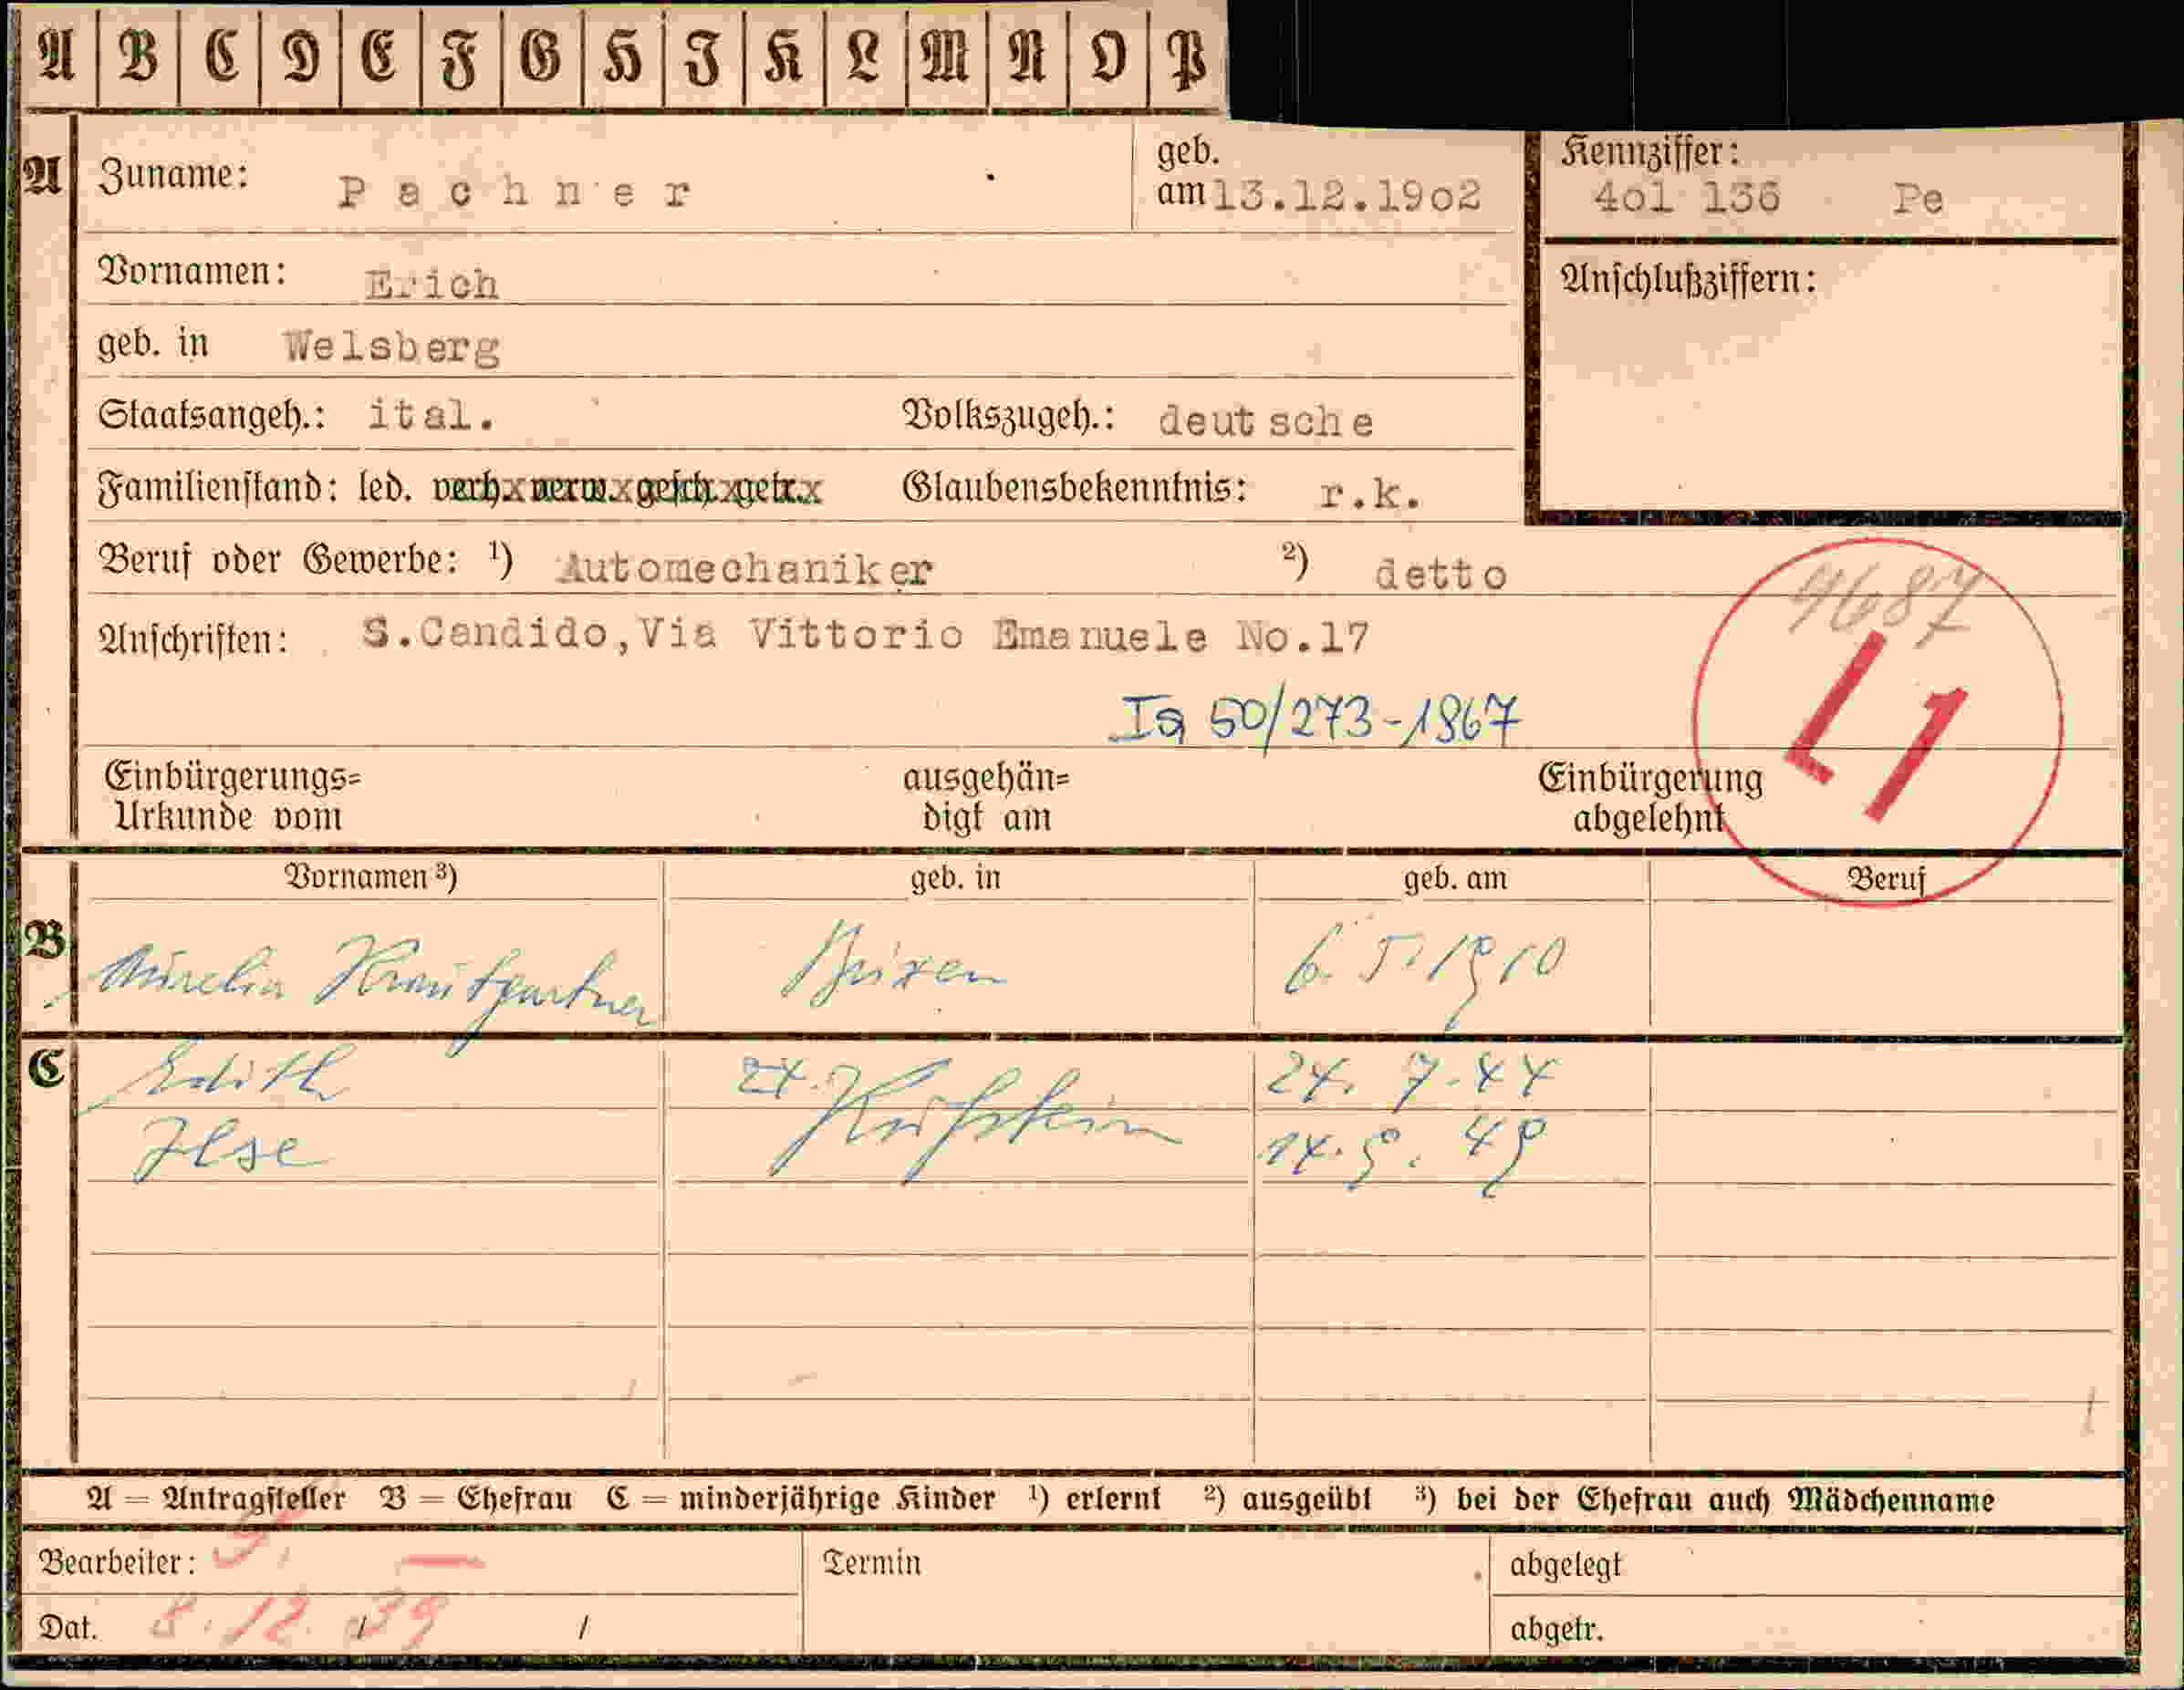 A B C D E F G H I K L M N O P
A
Zuname: Pachner
geb. am 13.12.19o2
Kennziffer: 4o1 136 Pe
Vornamen: Erich
Anschlußziffern:
geb. in Welsberg
Staatsangeh.: ital. Volkszugeh.: deutsche
Familienstand: led. verh. verw. gesch. getr. Glaubensbekenntnis: r.k.
Beruf oder Gewerbe: ¹) Automechaniker ²) detto
9687
Anschriften: S.Candido,Via Vittorio Emanuele No.17
L1
Ia 50/273-1867
Einbürgerungs= Urkunde vom
ausgehän= digt am
Einbürgerung abgelehnt
Vornamen ³) geb. in geb. am Beruf
B Aurelia Krautgartner Brixen 6. 5. 1910
C Edith 24. Kufstein 24. 7. 44
Ilse 14. 9. 49
A = Antragsteller B = Ehefrau C = minderjährige Kinder ¹) erlernt ²) ausgeübt ³) bei der Ehefrau auch Mädchenname
Bearbeiter: Termin abgelegt
Dat. 8.12.39 / abgetr.